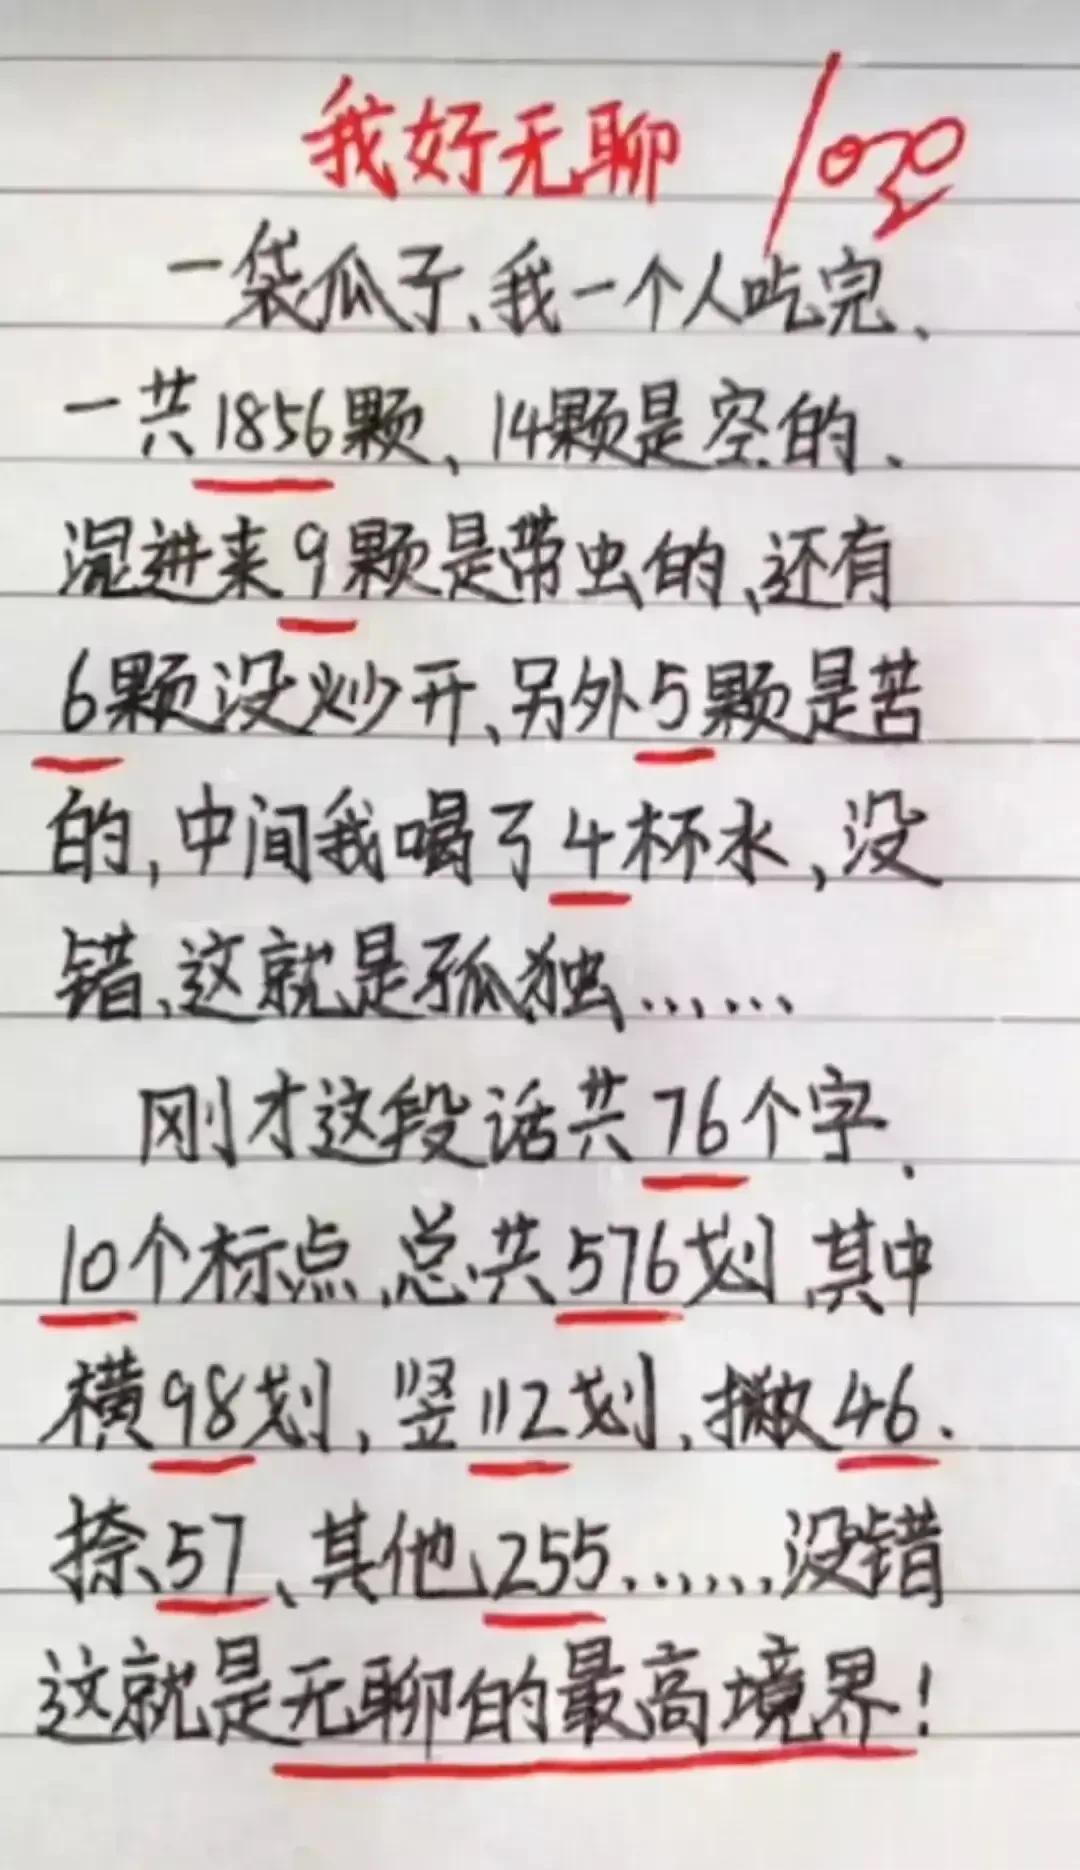 我好无聊
一袋瓜子、我一个人吃完、
一共1856颗、14颗是空的、
混进来9颗是带虫的、还有
6颗没炒开、另外5颗是苦
的,中间我喝了4杯水,没
错、这就是孤独……
刚才这段话共76个字、
10个标点、总共576划、其中
横98划,竖112划,撇46、
捺57、其他255……没错
这就是无聊的最高境界!